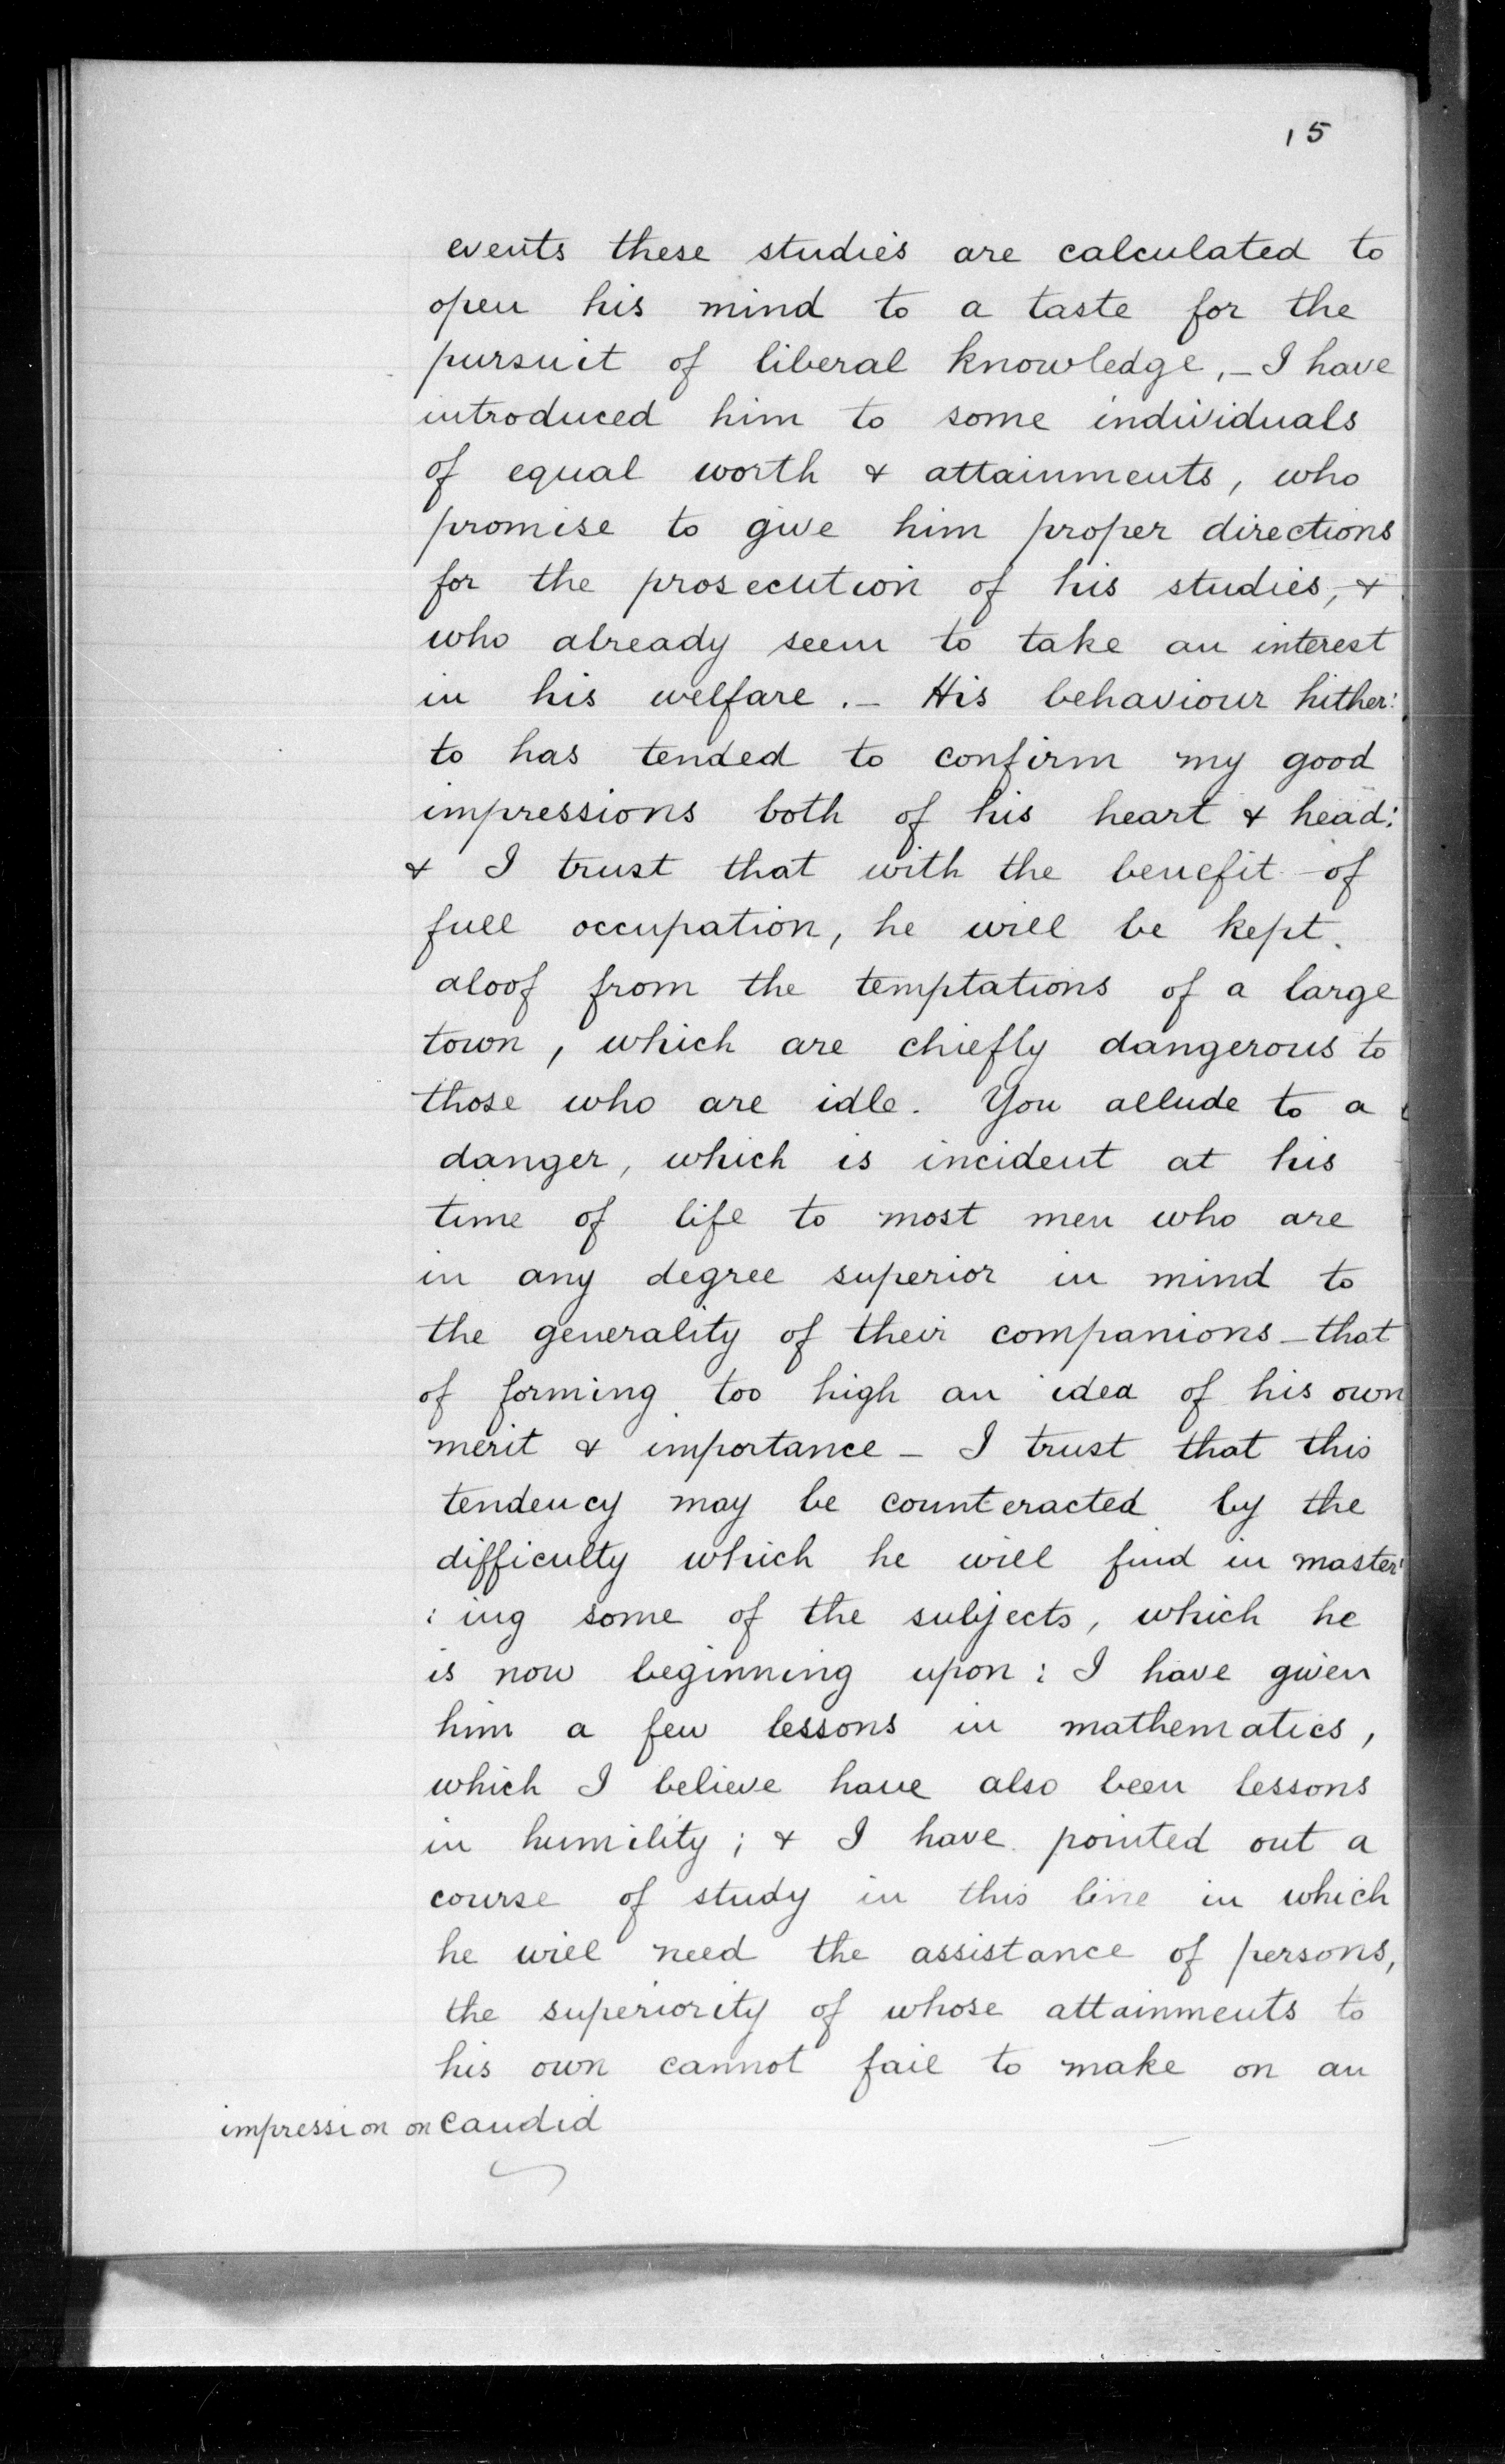 15
events these studies are calculated to
open his mind to a taste for the
pursuit of liberal knowledge,– I have
introduced him to some individuals
of equal worth & attainments, who
promise to give him proper directions
for the prosecution of his studies, &
who already seem to take an interest
in his welfare.– His behaviour hither:
to has tended to confirm my good
impressions both of his heart & head:
& I trust that with the benefit of
full occupation, he will be kept
aloof from the temptations of a large
town, which are chiefly dangerous to
those who are idle. You allude to a
danger, which is incident at his
time of life to most men who are
in any degree superior in mind to
the generality of their companions – that
of forming too high an idea of his own
merit & importance – I trust that this
tendency may be counteracted by the
difficulty which he will find in master:
:ing some of the subjects, which he
is now beginning upon: I have given
him a few lessons in mathematics,
which I believe have also been lessons
in humility; & I have pointed out a
course of study in this line in which
he will need the assistance of persons,
the superiority of whose attainments to
his own cannot fail to make on an
impression on candid